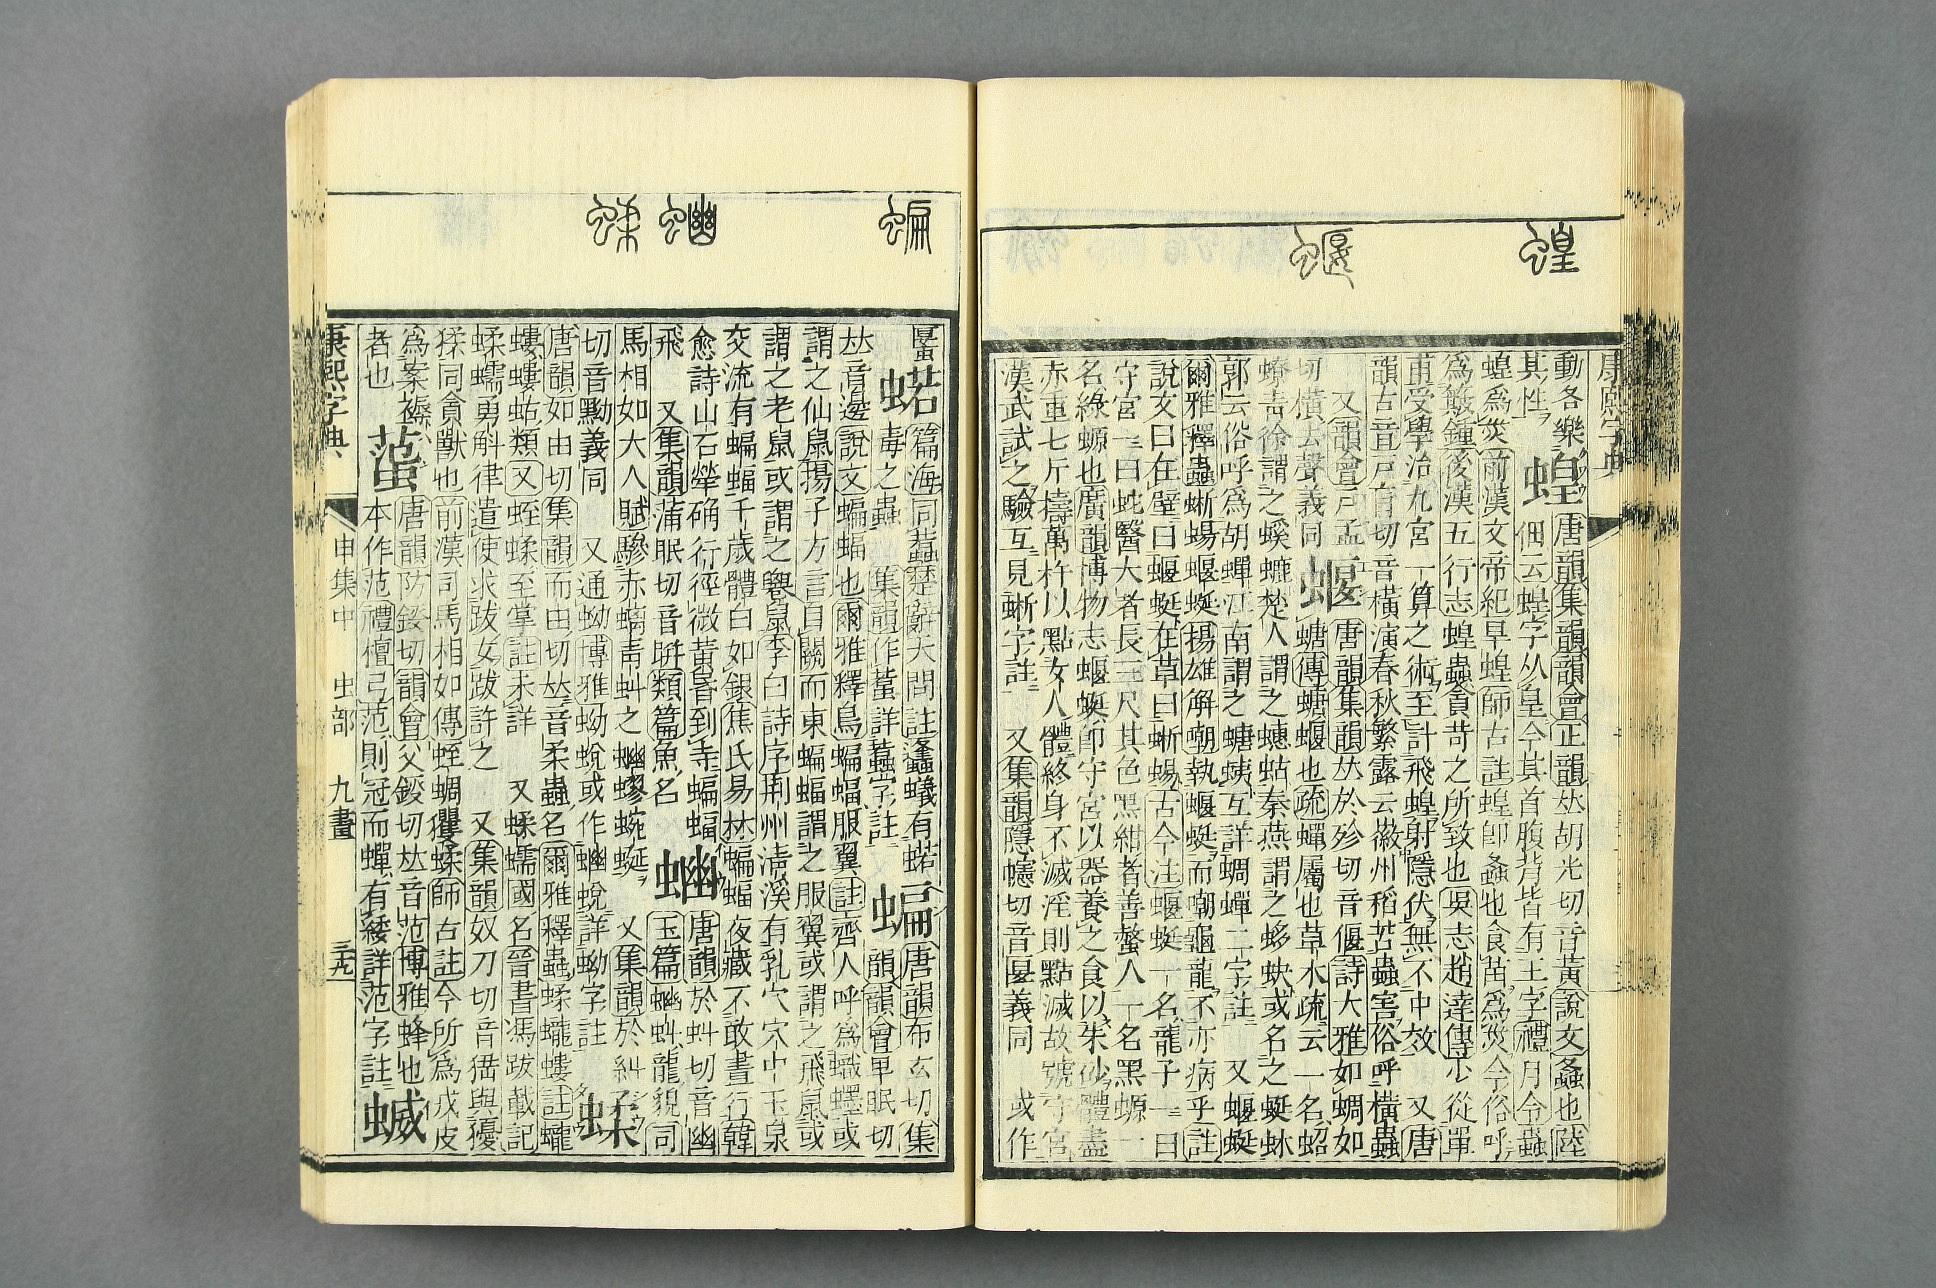 蝗
蝘
動各樂
其性 蝗 唐韻集韻韻會正韻𠀤胡光切音黃說文螽也陸
佃云蝗字从皇今其首腹背皆有王字禮月令蟲
蝗爲災前漢文帝紀旱蝗師古註蝗卽螽也食苗爲災今俗呼
爲簸鍾後漢五行志蝗蟲貪苛之所致也吳志趙達傳少從單
甫受學治九宮一算之術至計飛蝗射隱伏無不中效 又唐
韻古音戸盲切音橫演春秋繁露云徽州稻苦蟲害俗呼橫蟲
又韻會戸孟
切橫去聲義同 蝘 唐韻集韻𠀤於殄切音偃詩大雅如蜩如
螗傳螗蝘也疏蟬屬也草木疏云一名蛁
蟟靑徐謂之螇螰楚人謂之蟪蛄秦燕謂之蛥蚗或名之蜓蚞
郭云俗呼爲胡蟬江南謂之螗蛦互詳蜩蟬二字註 又蝘蜓
爾雅釋蟲蜥蜴蝘蜓揚雄解嘲執蝘蜓而嘲龜龍不亦病乎註
說文曰在壁曰蝘蜓在草曰蜥蜴古今注蝘蜓一名龍子一曰
守宮一曰蛇醫大者長三尺其色黑紺者善螫人一名黑螈一
名綠螈也廣韻博物志蝘蜓卽守宮以器養之食以朱砂體盡
赤重七斤擣萬杵以點女人體終身不滅淫則點滅故號守宮
漢武試之驗互見蜥字註 又集韻隱幰切音匽義同 或作
康熙字典
蝙
蝛
蝚
䘆 蠚 篇海同蠚楚辭大問註蠭蟻有蠚
毒之蟲 集韻作䓥詳䘆字註 蝙 唐韻布玄切集
韻韻會𤰞眠切
𠀤音邊說文蝙蝠也爾雅釋鳥蝙蝠服翼註齊人呼爲蟙䘃或
謂之仙鼠揚子方言自關而東蝙蝠謂之服翼或謂之飛鼠或
謂之老鼠或謂之鸓鼠李白詩序荆州淸溪有乳穴穴中玉泉
交流有蝙蝠千歲體白如銀焦氏易林蝙蝠夜藏不敢晝行韓
愈詩山石犖确行徑微黃昏到寺蝙蝠
飛 又集韻蒲眠切音騈類篇魚名 唐韻於虯切音幽
玉篇 虯龍貌司
馬相如大人賦驂赤螭靑虯之 蟉蜿蜒 又集韻於糾
切音黝義同 又通蚴博雅蚴蛻或作 蛻詳蚴字註 蝚
唐韻如由切集韻而由切𠀤音柔蟲名爾雅釋蟲蝚蛖螻註蛖
螻螻蛄類又蛭蝚至掌註未詳 又蝚蠕國名晉書馮跋載記
蝚蠕勇斛律遣使求跋女跋許之 又集韻奴刀切音猱與獶
猱同貪獸也前漢司馬相如傳蛭蜩玃蝚師古註今所爲戎皮
爲案褥 䖤 唐韻防錽切韻會父鋄切𠀤音范博雅蜂也
者也 本作范禮檀弓范則冠而蟬有緌詳范字註 蝛
康熙字典 申集中 虫部 九畫